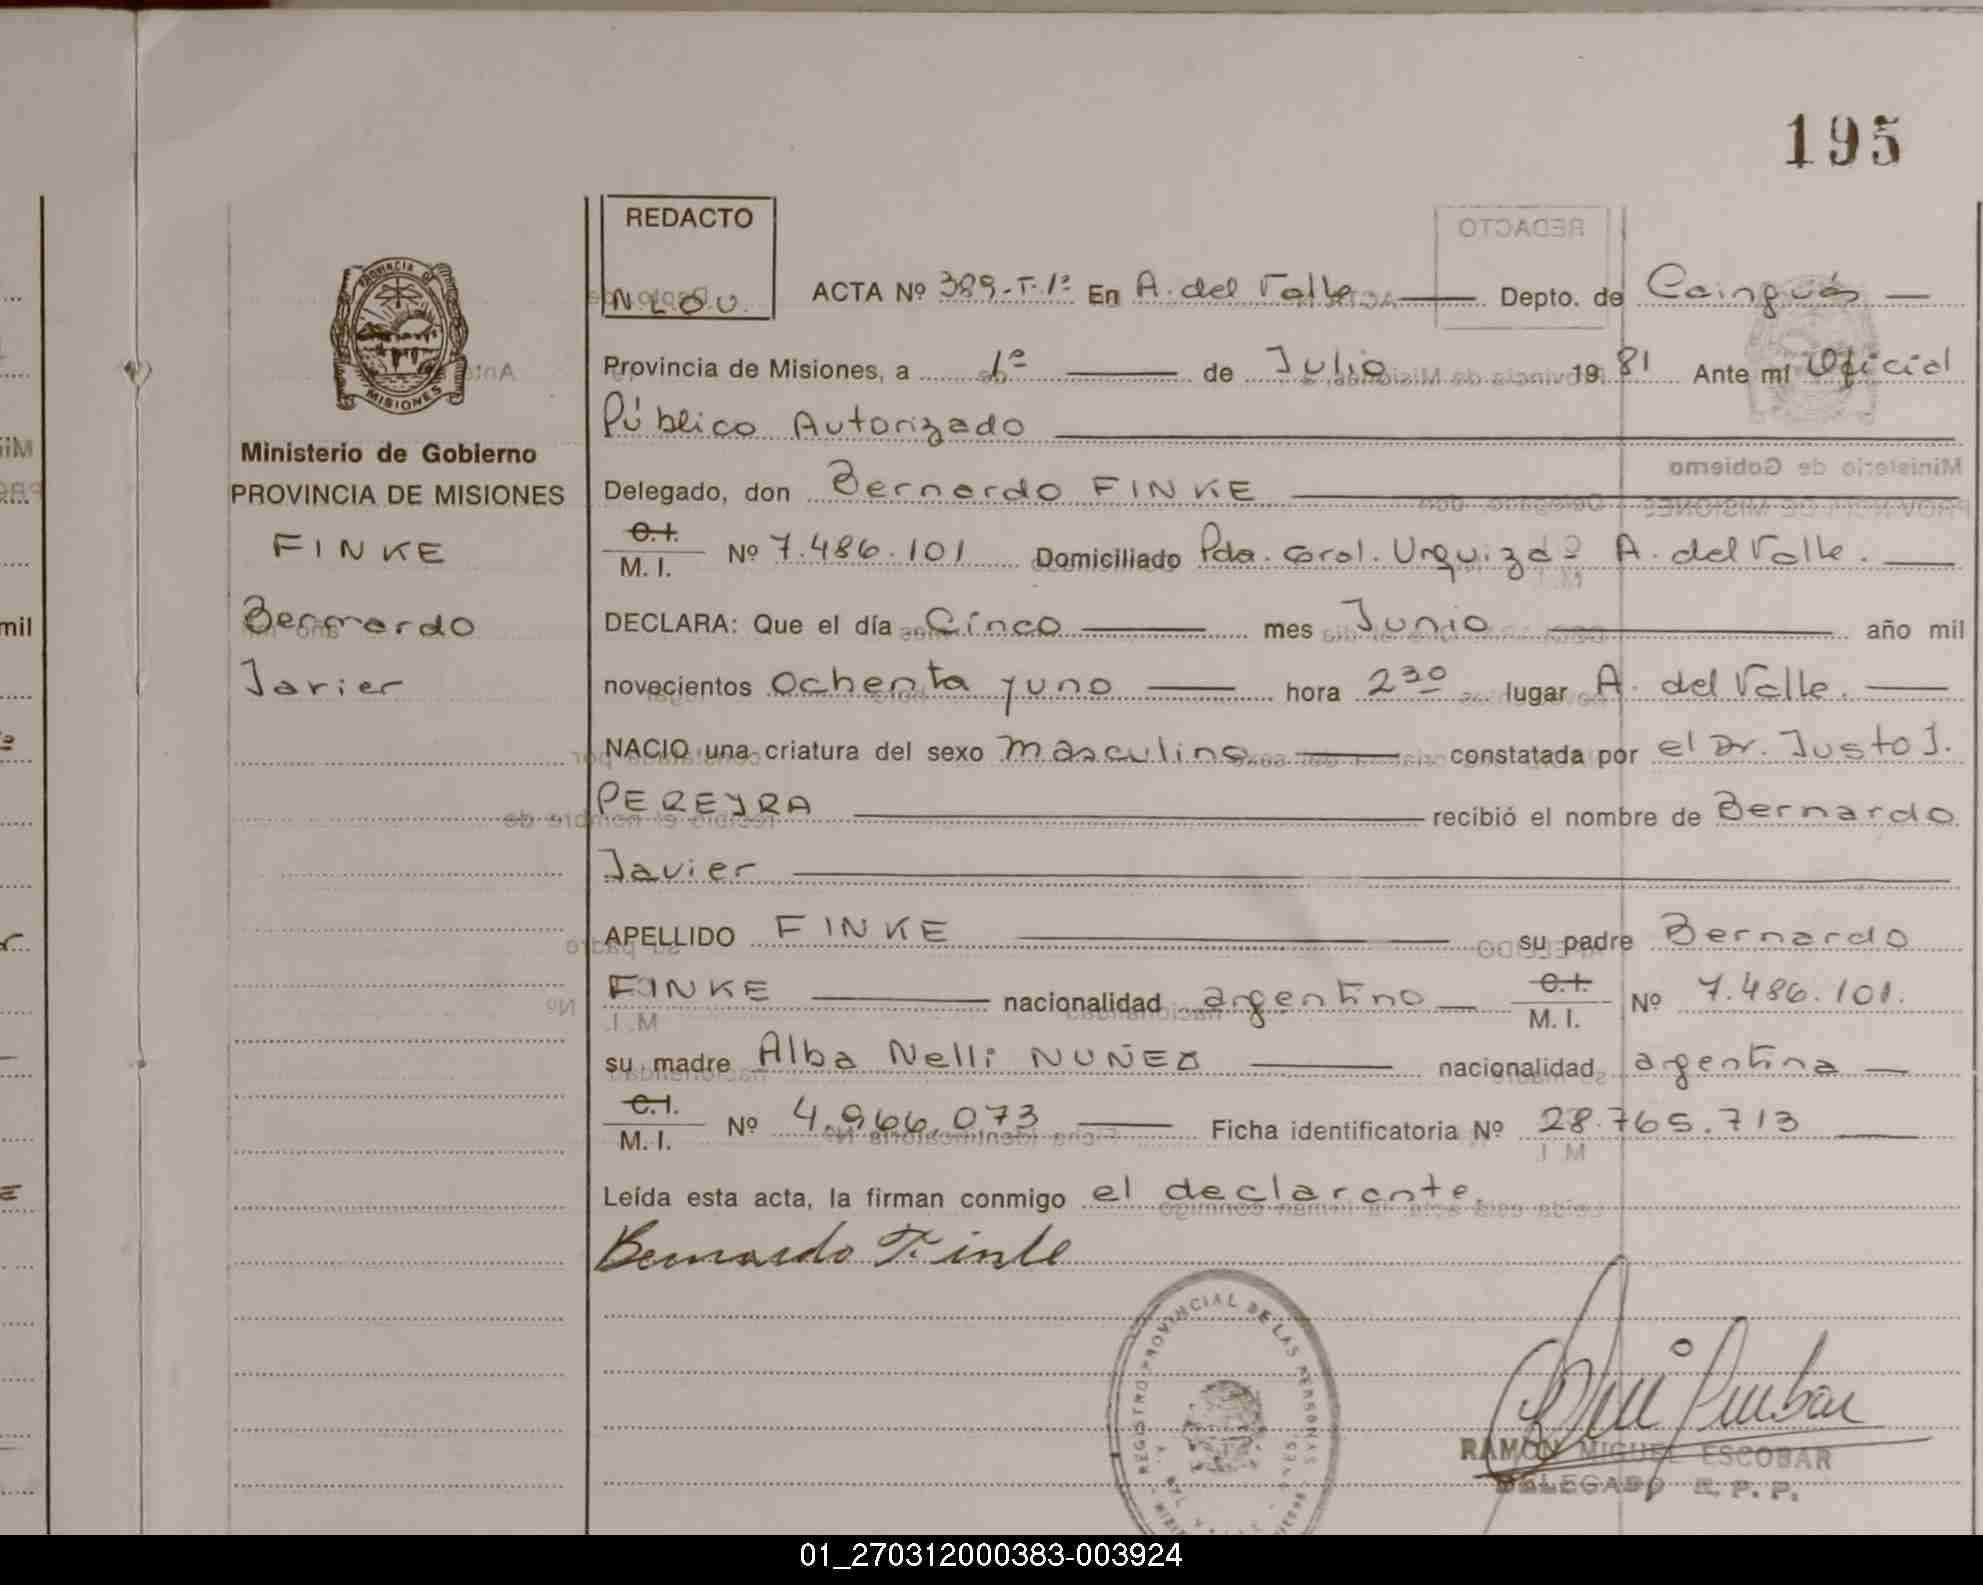 195
REDACTO
N.L.O.U.
ACTA Nº 389-T.1º En A. del Valle Depto. de Cainguás
Provincia de Misiones, a 1º de Julio 1981 Ante mí Oficial
Público Autorizado
Delegado, don Bernardo FINKE
C.I.
M. I. Nº 7.486.101 Domiciliado Pda. Gral. Urquiza A. del Valle.
DECLARA: Que el día Cinco mes Junio año mil
novecientos ochenta y uno hora 2 30 lugar A. del Valle.
NACIO una criatura del sexo masculino constatada por el Dr. Justo J.
PEREYRA recibió el nombre de Bernardo
Javier
APELLIDO FINKE su padre Bernardo
FINKE nacionalidad argentino C.I.
M. I. Nº 7.486.101.
su madre Alba Nelli NUÑEZ nacionalidad argentina
C.I.
M. I. Nº 4.966.073 Ficha identificatoria Nº 28.765.713
Leída esta acta, la firman conmigo el declarante.
Bernardo Finke
PROVINCIA DE
MISIONES
Ministerio de Gobierno
PROVINCIA DE MISIONES
FINKE
Bernardo
Javier
REGISTRO PROVINCIAL DE LAS PERSONAS
RAMON MIGUEL ESCOBAR
DELEGADO R. P. P.
mil
01_270312000383-003924